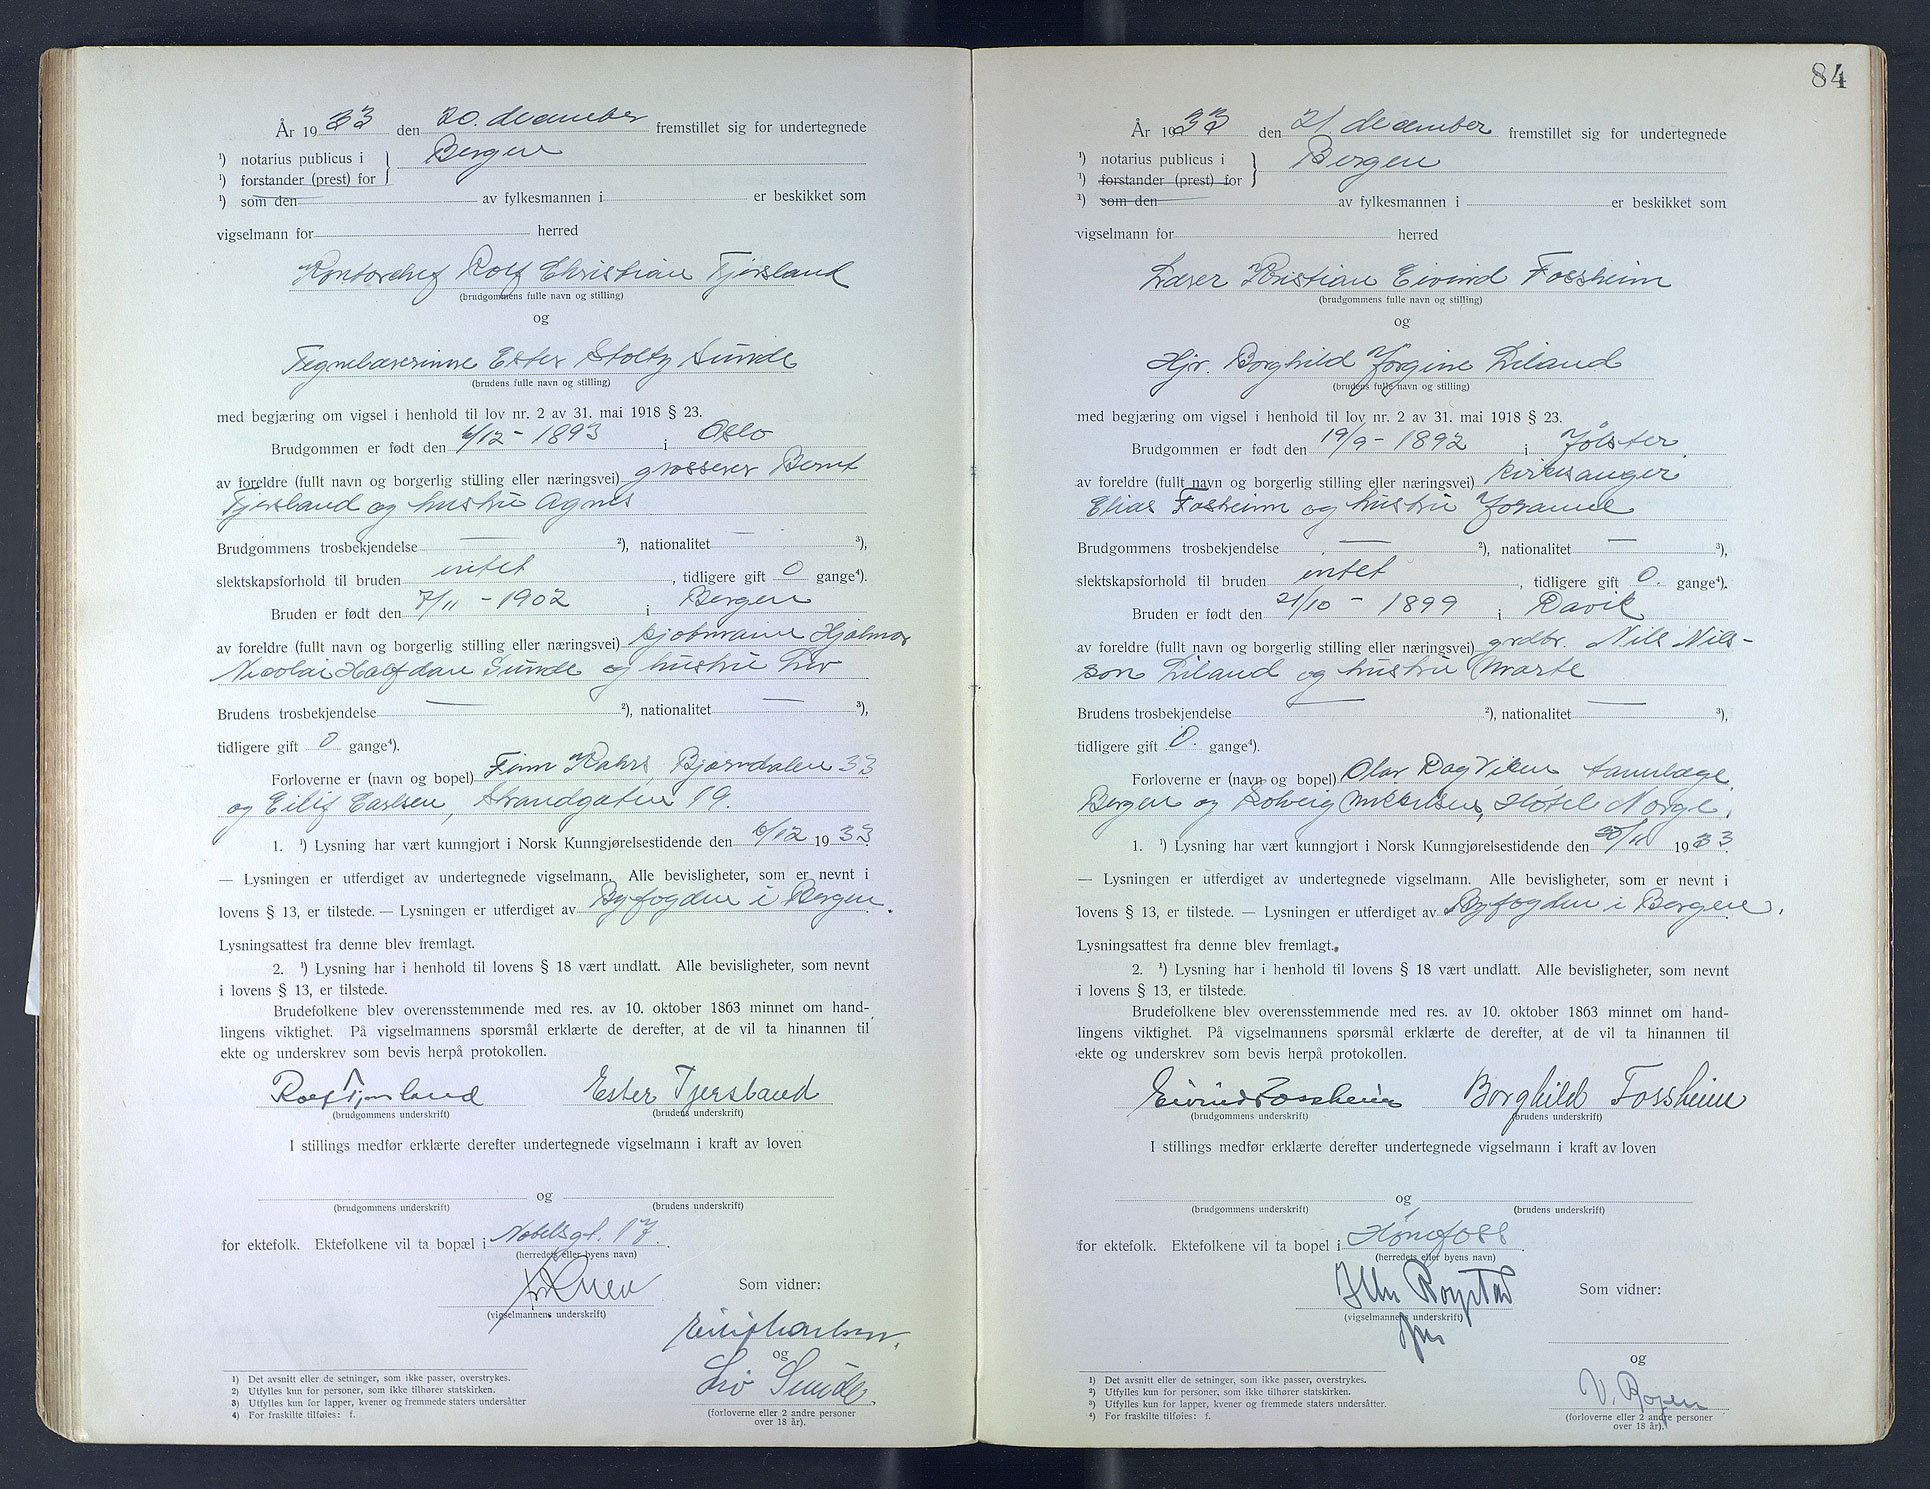 År 1933 den 20. december fremstillet sig for undertegnede
¹) notarius publicus i } Bergen
¹) forstander (prest) for
¹) som den av fylkesmannen i er beskikket som
vigselmann for herred
Kontorchef Rolf Christian Tjersland
(brudgommens fulle navn og stilling)
og
Tegnelærerinne Ester Stoltz Sunde
(brudens fulle navn og stilling)
med begjæring om vigsel i henhold til lov nr. 2 av 31. mai 1918 § 23.
Brudgommen er født den 6/12 - 1893 i Oslo
av foreldre (fullt navn og borgerlig stilling eller næringsvei) grosserer Bernt
Tjersland og hustru Agnes
Brudgommens trosbekjendelse — ²), nationalitet — ³),
slektskapsforhold til bruden intet, tidligere gift 0 gange⁴).
Bruden er født den 7/11 - 1902 i Bergen
av foreldre (fullt navn og borgerlig stilling eller næringsvei) kjøbmann Hjalmar
Nicolai Halfdan Sunde og hustru
Brudens trosbekjendelse — ²), nationalitet — ³),
tidligere gift 0 gange⁴).
Forloverne er (navn og bopel) Finn Kahrs, Bjørndalen 33
og Eilif Carlsen, Strandgaten 19.
1. ¹) Lysning har vært kunngjort i Norsk Kunngjørelsestidende den 6/12 1933.
— Lysningen er utferdiget av undertegnede vigselmann. Alle bevisligheter, som er nevnt i
lovens § 13, er tilstede. — Lysningen er utferdiget av Byfogden i Bergen.
Lysningsattest fra denne blev fremlagt.
2. ¹) Lysning har i henhold til lovens § 18 vært undlatt. Alle bevisligheter, som nevnt
i lovens § 13, er tilstede.
Brudefolkene blev overensstemmende med res. av 10. oktober 1863 minnet om hand-
lingens viktighet. På vigselmannens spørsmål erklærte de derefter, at de vil ta hinannen til
ekte og underskrev som bevis herpå protokollen.
Rolf Tjersland Ester Tjersland
(brudgommens underskrift) (brudens underskrift)
I stillings medfør erklærte derefter undertegnede vigselmann i kraft av loven
og
(brudgommens underskrift) (brudens underskrift)
for ektefolk. Ektefolkene vil ta bopæl i Nobelsgt. 17.
(herredets eller byens navn)
Som vidner:
(vigselmannens underskrift)
Eilif Carlsen.
og
Sunde.
(forloverne eller 2 andre personer
over 18 år).
1) Det avsnitt eller de setninger, som ikke passer, overstrykes.
2) Utfylles kun for personer, som ikke tilhører statskirken.
3) Utfylles kun for lapper, kvener og fremmede staters undersåtter
4) For fraskilte tilføies: f.
84
År 1933 den 21. december fremstillet sig for undertegnede
¹) notarius publicus i } Bergen
¹) forstander (prest) for
¹) som den av fylkesmannen i er beskikket som
vigselmann for herred
Lærer Kristian Eivind Fossheim
(brudgommens fulle navn og stilling)
og
Hjr. Borghild Jorgine Liland
(brudens fulle navn og stilling)
med begjæring om vigsel i henhold til lov nr. 2 av 31. mai 1918 § 23.
Brudgommen er født den 19/9 - 1892 i Jølster
av foreldre (fullt navn og borgerlig stilling eller næringsvei) kirkesanger
Elias Fossheim og hustru
Brudgommens trosbekjendelse — ²), nationalitet — ³),
slektskapsforhold til bruden intet, tidligere gift 0. gange⁴).
Bruden er født den 21/10 - 1899 i Davik
av foreldre (fullt navn og borgerlig stilling eller næringsvei) grdbr. Nils Nils-
son Liland og hustru Marte
Brudens trosbekjendelse — ²), nationalitet — ³),
tidligere gift 0. gange⁴).
Forloverne er (navn og bopel) Olav Dag Viken tannlæge
Bergen og Solveig Mikkelsen, Hotel Norge.
1. ¹) Lysning har vært kunngjort i Norsk Kunngjørelsestidende den 30/11 1933.
— Lysningen er utferdiget av undertegnede vigselmann. Alle bevisligheter, som er nevnt i
lovens § 13, er tilstede. — Lysningen er utferdiget av Byfogden i Bergen.
Lysningsattest fra denne blev fremlagt.
2. ¹) Lysning har i henhold til lovens § 18 vært undlatt. Alle bevisligheter, som nevnt
i lovens § 13, er tilstede.
Brudefolkene blev overensstemmende med res. av 10. oktober 1863 minnet om hand-
lingens viktighet. På vigselmannens spørsmål erklærte de derefter, at de vil ta hinannen til
ekte og underskrev som bevis herpå protokollen.
Eivind Fossheim Borghild Fossheim
(brudgommens underskrift) (brudens underskrift)
I stillings medfør erklærte derefter undertegnede vigselmann i kraft av loven
og
(brudgommens underskrift) (brudens underskrift)
for ektefolk. Ektefolkene vil ta bopel i Hønefoss.
(herredets eller byens navn)
Som vidner:
(vigselmannens underskrift)
og
(forloverne eller 2 andre personer
over 18 år).
1) Det avsnitt eller de setninger, som ikke passer, overstrykes.
2) Utfylles kun for personer, som ikke tilhører statskirken.
3) Utfylles kun for lapper, kvener og fremmede staters undersåtter.
4) For fraskilte tilføies: f.